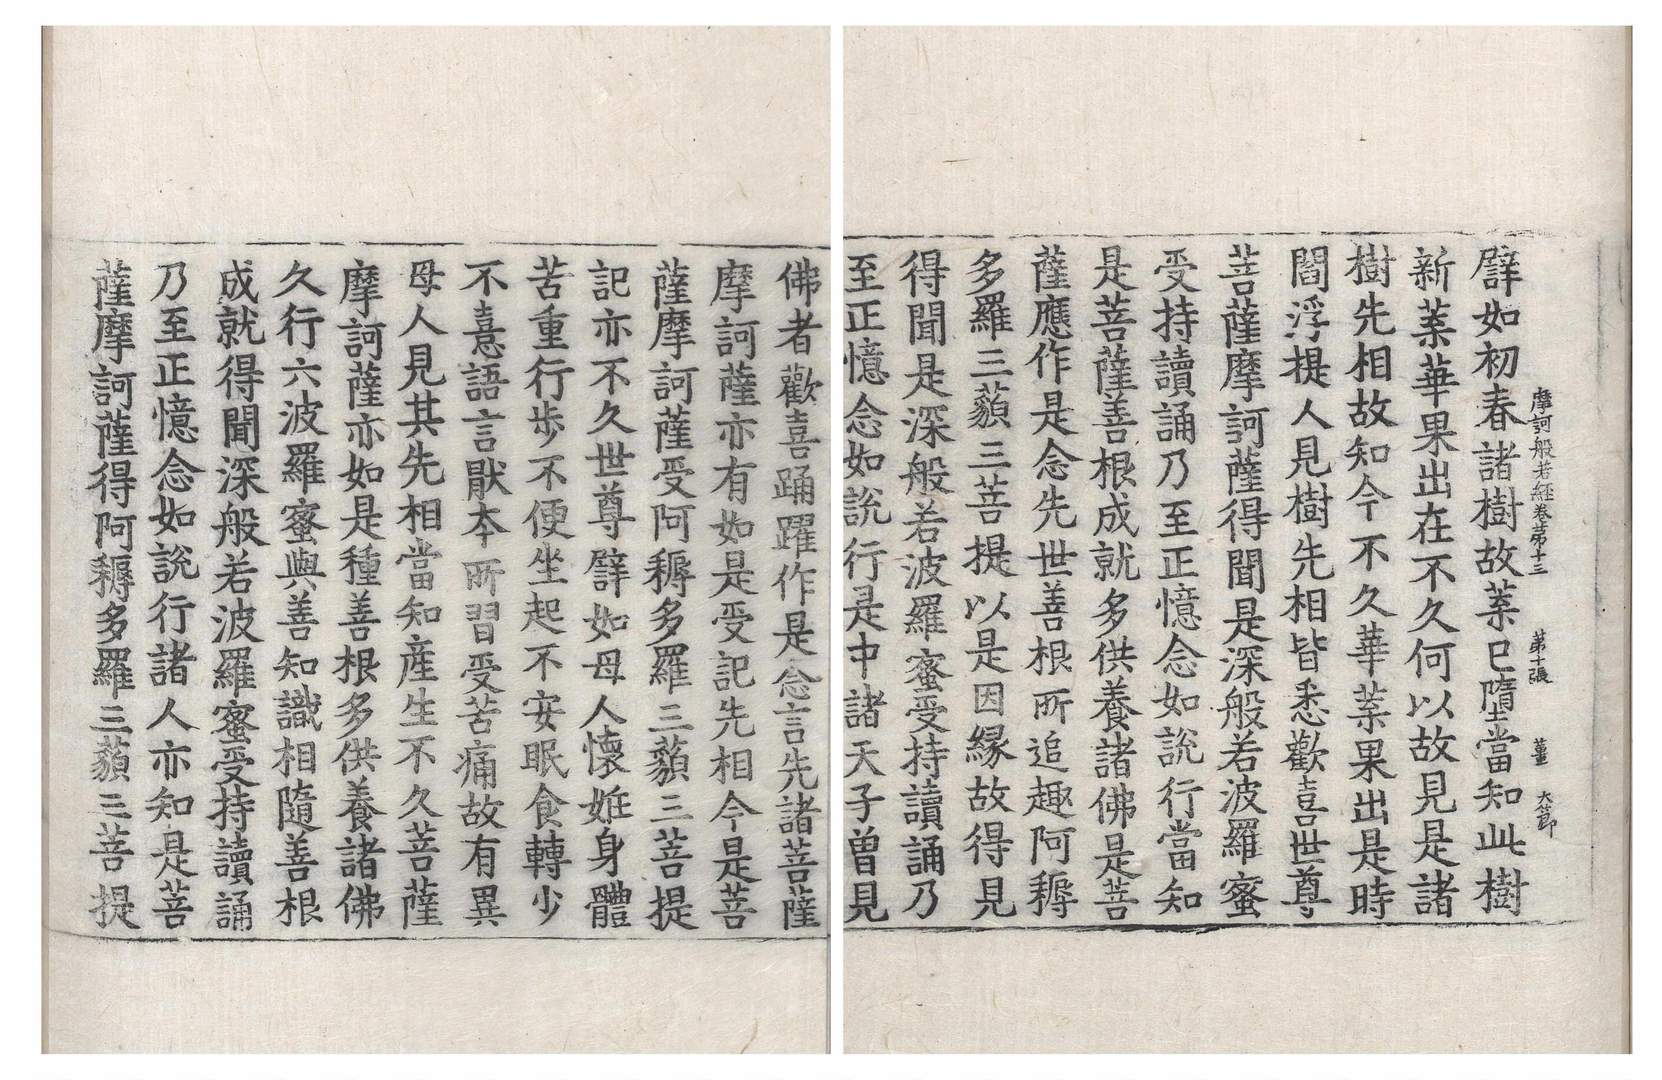 摩訶般若經卷第十三　第十張　董　大節
譬如初春諸樹故葉已墮當知此樹
新葉華果出在不久何以故見是諸
樹先相故知今不久華葉果出是時
閻浮提人見樹先相皆悉歡喜世尊
菩薩摩訶薩得聞是深般若波羅蜜
受持讀誦乃至正憶念如說行當知
是菩薩善根成就多供養諸佛是菩
薩應作是念先世善根所追趣阿耨
多羅三藐三菩提以是因緣故得見
得聞是深般若波羅蜜受持讀誦乃
至正憶念如說行是中諸天子曾見
佛者歡喜踊躍作是念言先諸菩薩
摩訶薩亦有如是受記先相今是菩
薩摩訶薩受阿耨多羅三藐三菩提
記亦不久世尊譬如母人懷妊身體
苦重行步不便坐起不安眠食轉少
不憙語言厭本所習受苦痛故有異
母人見其先相當知産生不久菩薩
摩訶薩亦如是種善根多供養諸佛
久行六波羅蜜與善知識相隨善根
成就得聞深般若波羅蜜受持讀誦
乃至正憶念如說行諸人亦知是菩
薩摩訶薩得阿耨多羅三藐三菩提